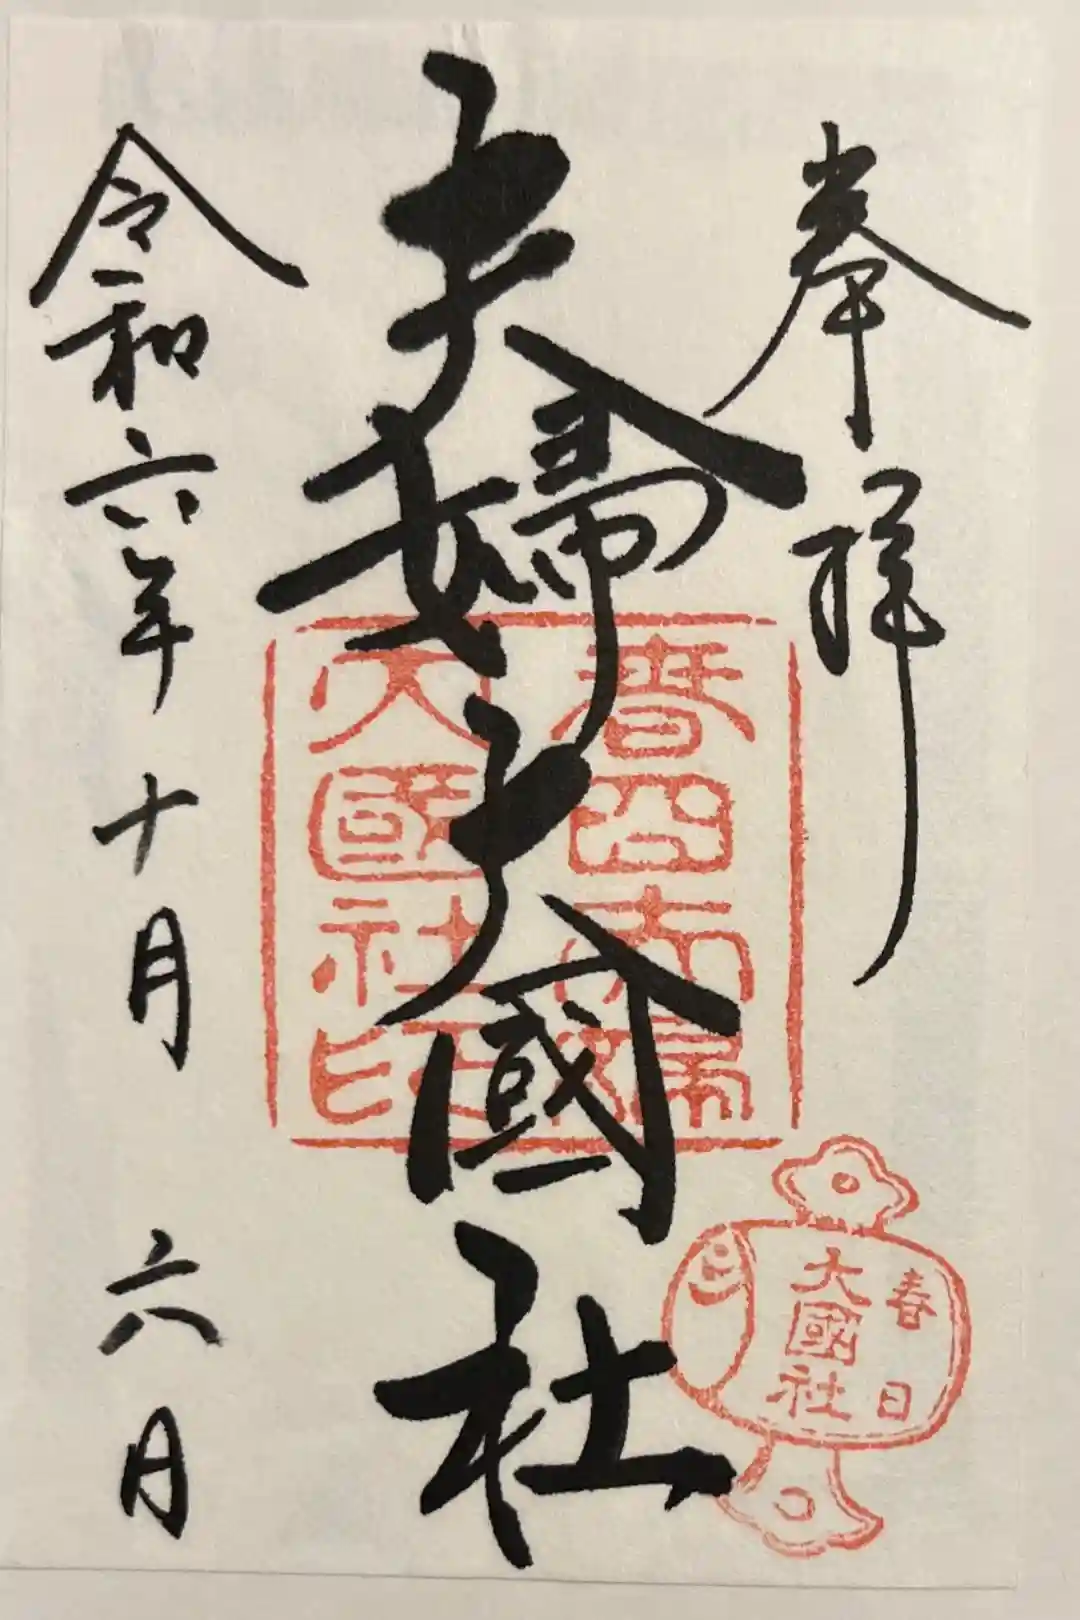 奉拝
夫婦大國社
令和六年十月六日
春日夫婦
大國社印
春日
大國社